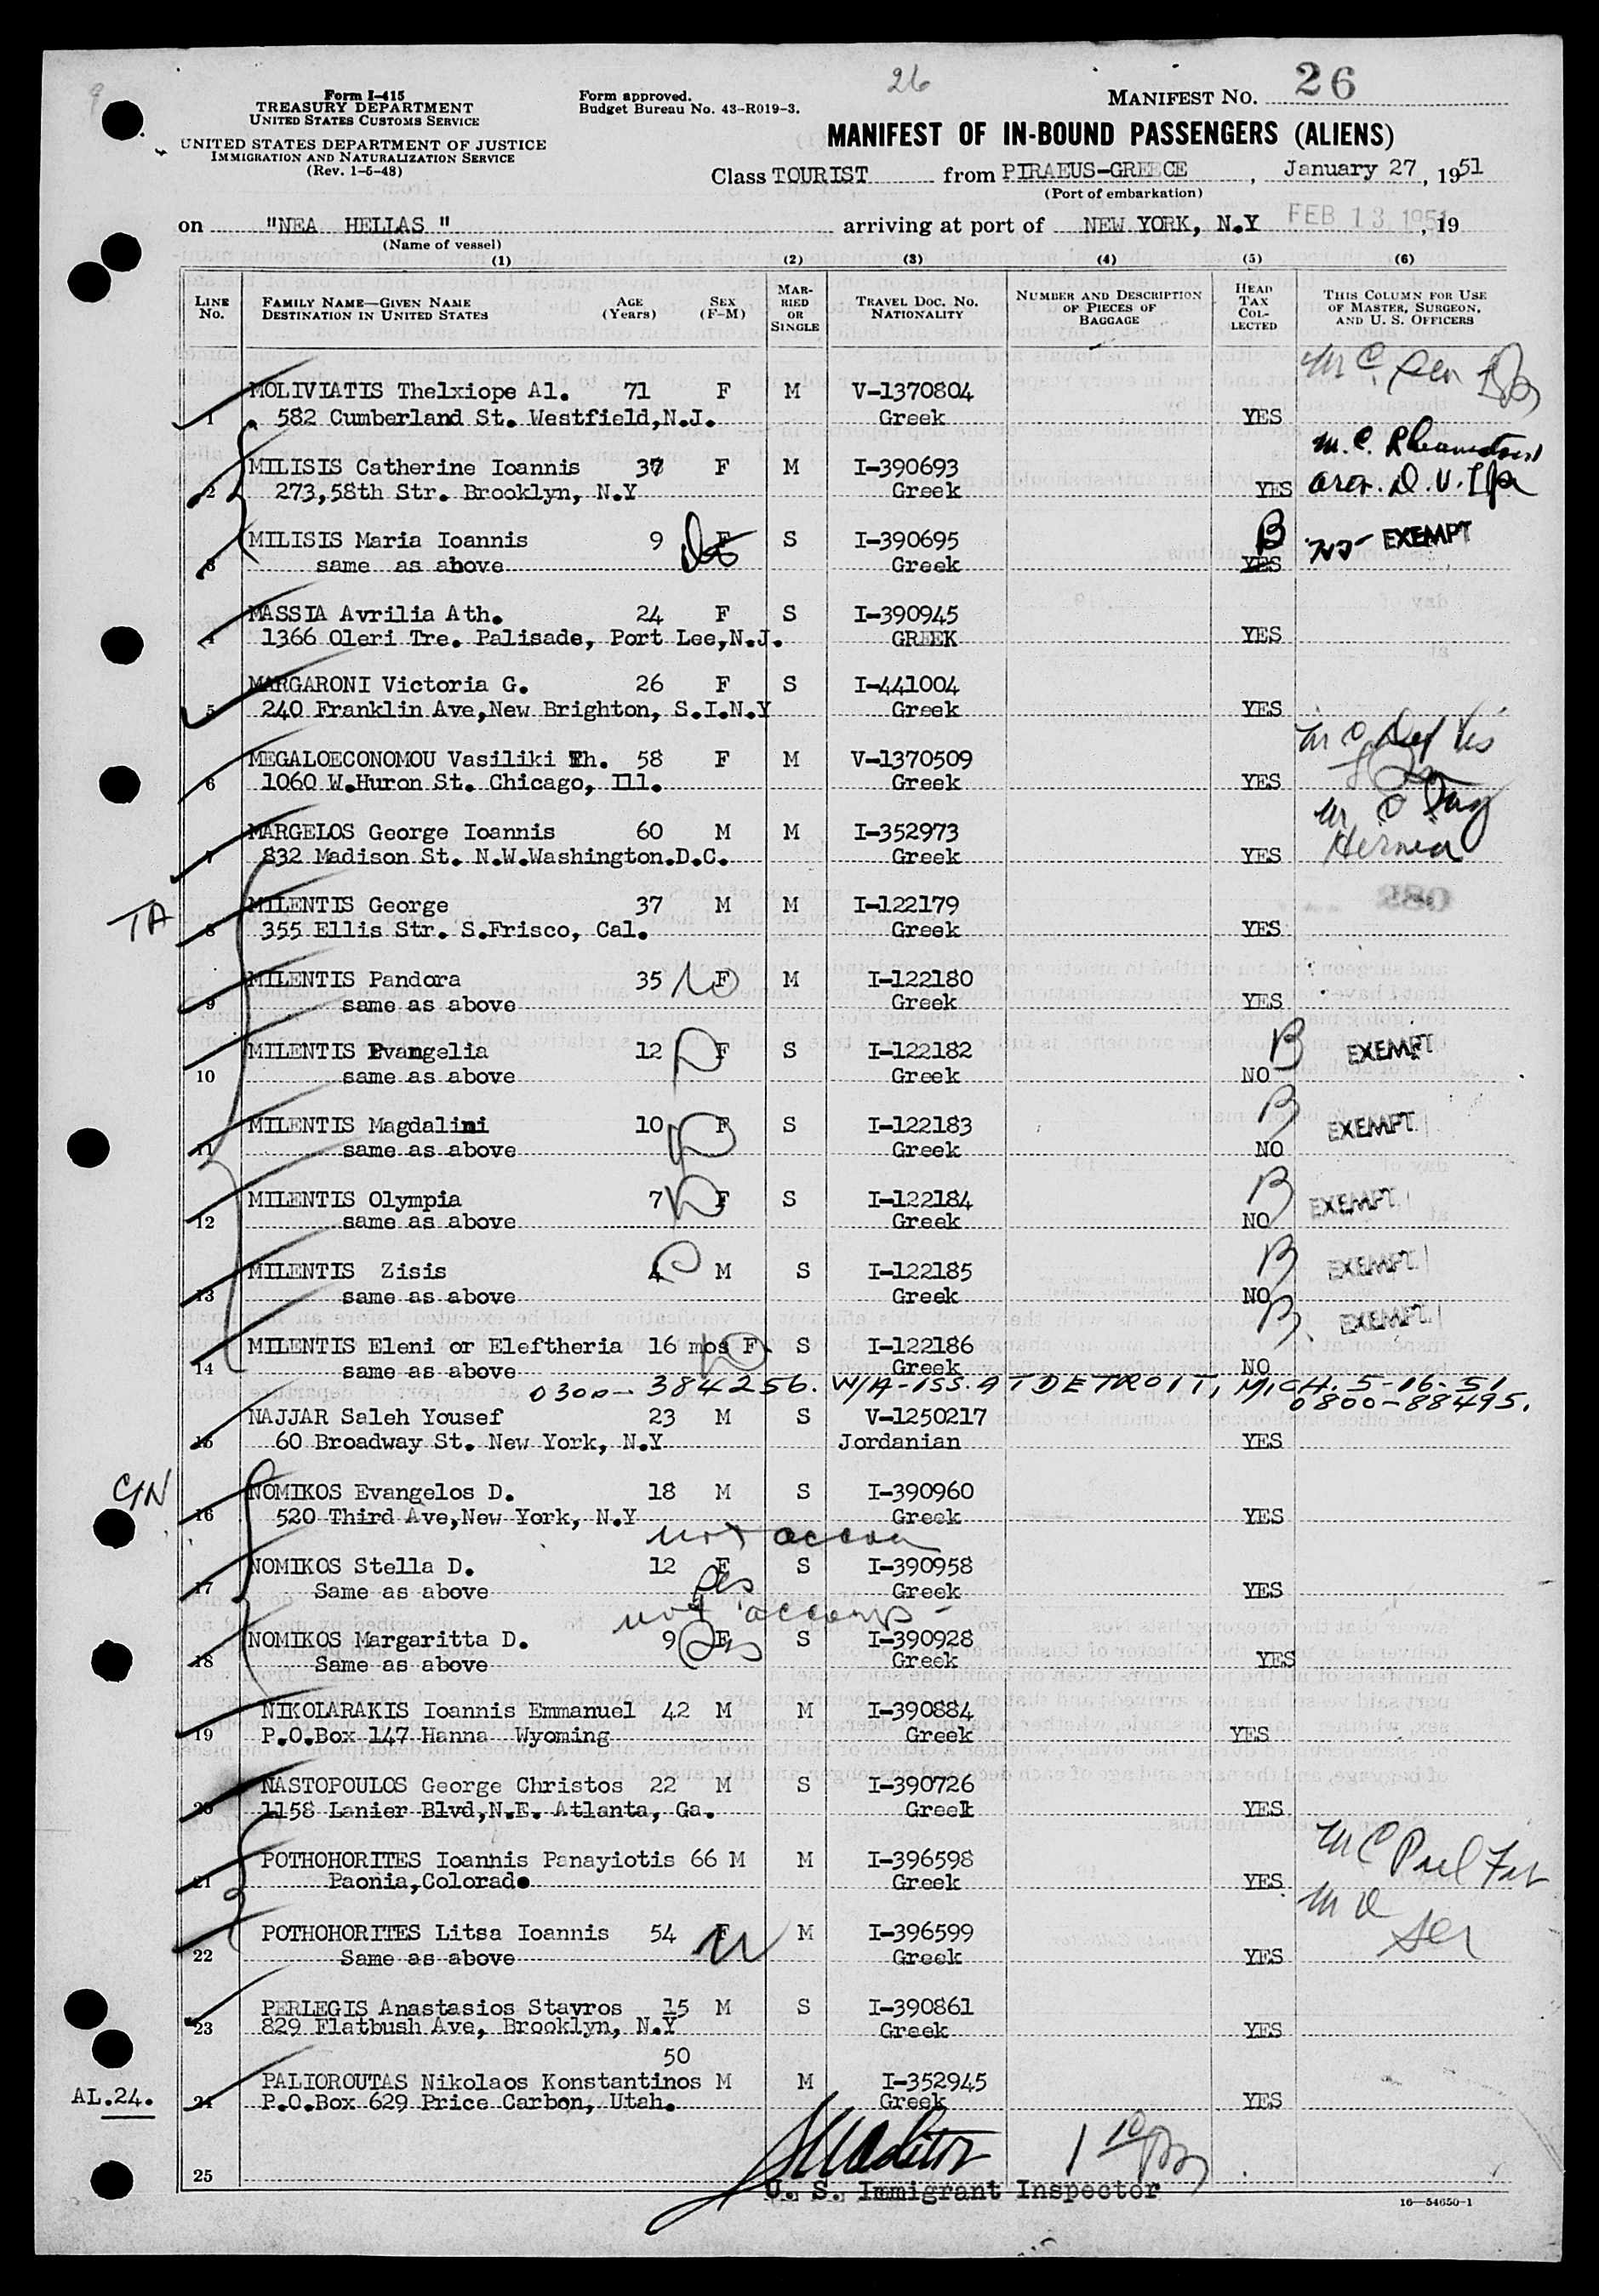 26
Form I-415
TREASURY DEPARTMENT
UNITED STATES CUSTOMS SERVICE
UNITED STATES DEPARTMENT OF JUSTICE
IMMIGRATION AND NATURALIZATION SERVICE
(Rev. 1-5-48)
Form approved.
Budget Bureau No. 43-R019-3.
MANIFEST NO. 26
MANIFEST OF IN-BOUND PASSENGERS (ALIENS)
Class TOURIST from PIRAEUS-GREECE, January 27, 1951
(Port of embarkation)
on "NEA HELLAS" arriving at port of NEW YORK, N.Y FEB 13 1951, 19
(Name of vessel)
(1) (2) (3) (4) (5) (6)
LINE No. FAMILY NAME—GIVEN NAME DESTINATION IN UNITED STATES AGE (Years) SEX (F-M) MARRIED OR SINGLE TRAVEL DOC. NO. NATIONALITY NUMBER AND DESCRIPTION OF PIECES OF BAGGAGE HEAD TAX COLLECTED THIS COLUMN FOR USE OF MASTER, SURGEON, AND U. S. OFFICERS
MOLIVIATIS Thelxiope Al. 71 F M V-1370804
1 582 Cumberland St. Westfield,N.J. Greek YES
MILISIS Catherine Ioannis 37 F M I-390693
2 273,58th Str. Brooklyn, N.Y Greek YES
MILISIS Maria Ioannis 9 F S I-390695 B EXEMPT
3 same as above Greek YES
MASSIA Avrilia Ath. 24 F S I-390945
4 1366 Oleri Tre. Palisade, Port Lee,N.J. GREEK YES
MARGARONI Victoria G. 26 F S I-441004
5 240 Franklin Ave,New Brighton, S.I.N.Y Greek YES
MEGALOECONOMOU Vasiliki Th. 58 F M V-1370509
6 1060 W.Huron St. Chicago, Ill. Greek YES
MARGELOS George Ioannis 60 M M I-352973
7 832 Madison St. N.W.Washington.D.C. Greek YES Hernia
TA MILENTIS George 37 M M I-122179
8 355 Ellis Str. S.Frisco, Cal. Greek YES
MILENTIS Pandora 35 F M I-122180
9 same as above Greek YES
MILENTIS Evangelia 12 F S I-122182 B EXEMPT
10 same as above Greek NO
MILENTIS Magdalini 10 F S I-122183 B EXEMPT
11 same as above Greek NO
MILENTIS Olympia 7 F S I-122184 B EXEMPT
12 same as above Greek NO
MILENTIS Zisis 4 M S I-122185 B EXEMPT
13 same as above Greek NO
MILENTIS Eleni or Eleftheria 16 mos F. S I-122186 B EXEMPT
14 same as above Greek NO
0300-384256. W/A-ISS. AT DETROIT, MICH. 5-16-51
0800-88495.
NAJJAR Saleh Yousef 23 M S V-1250217
15 60 Broadway St. New York, N.Y Jordanian YES
NOMIKOS Evangelos D. 18 M S I-390960
16 520 Third Ave,New York, N.Y Greek YES
not accom
NOMIKOS Stella D. 12 F S I-390958
17 Same as above Greek YES
not accomp-
NOMIKOS Margaritta D. 9 F S I-390928
18 Same as above Greek YES
NIKOLARAKIS Ioannis Emmanuel 42 M M I-390884
19 P.O.Box 147 Hanna Wyoming Greek YES
NASTOPOULOS George Christos 22 M S I-390726
20 1158 Lanier Blvd,N.E. Atlanta, Ga. Greek YES
POTHOHORITES Ioannis Panayiotis 66 M M I-396598
21 Paonia,Colorado Greek YES
POTHOHORITES Litsa Ioannis 54 F M I-396599
22 Same as above Greek YES
PERLEGIS Anastasios Stavros 15 M S I-390861
23 829 Flatbush Ave, Brooklyn, N.Y Greek YES
50
PALIOROUTAS Nikolaos Konstantinos M M I-352945
AL.24. 24 P.O.Box 629 Price Carbon, Utah. Greek YES
25
U. S. Immigrant Inspector
16—54650-1